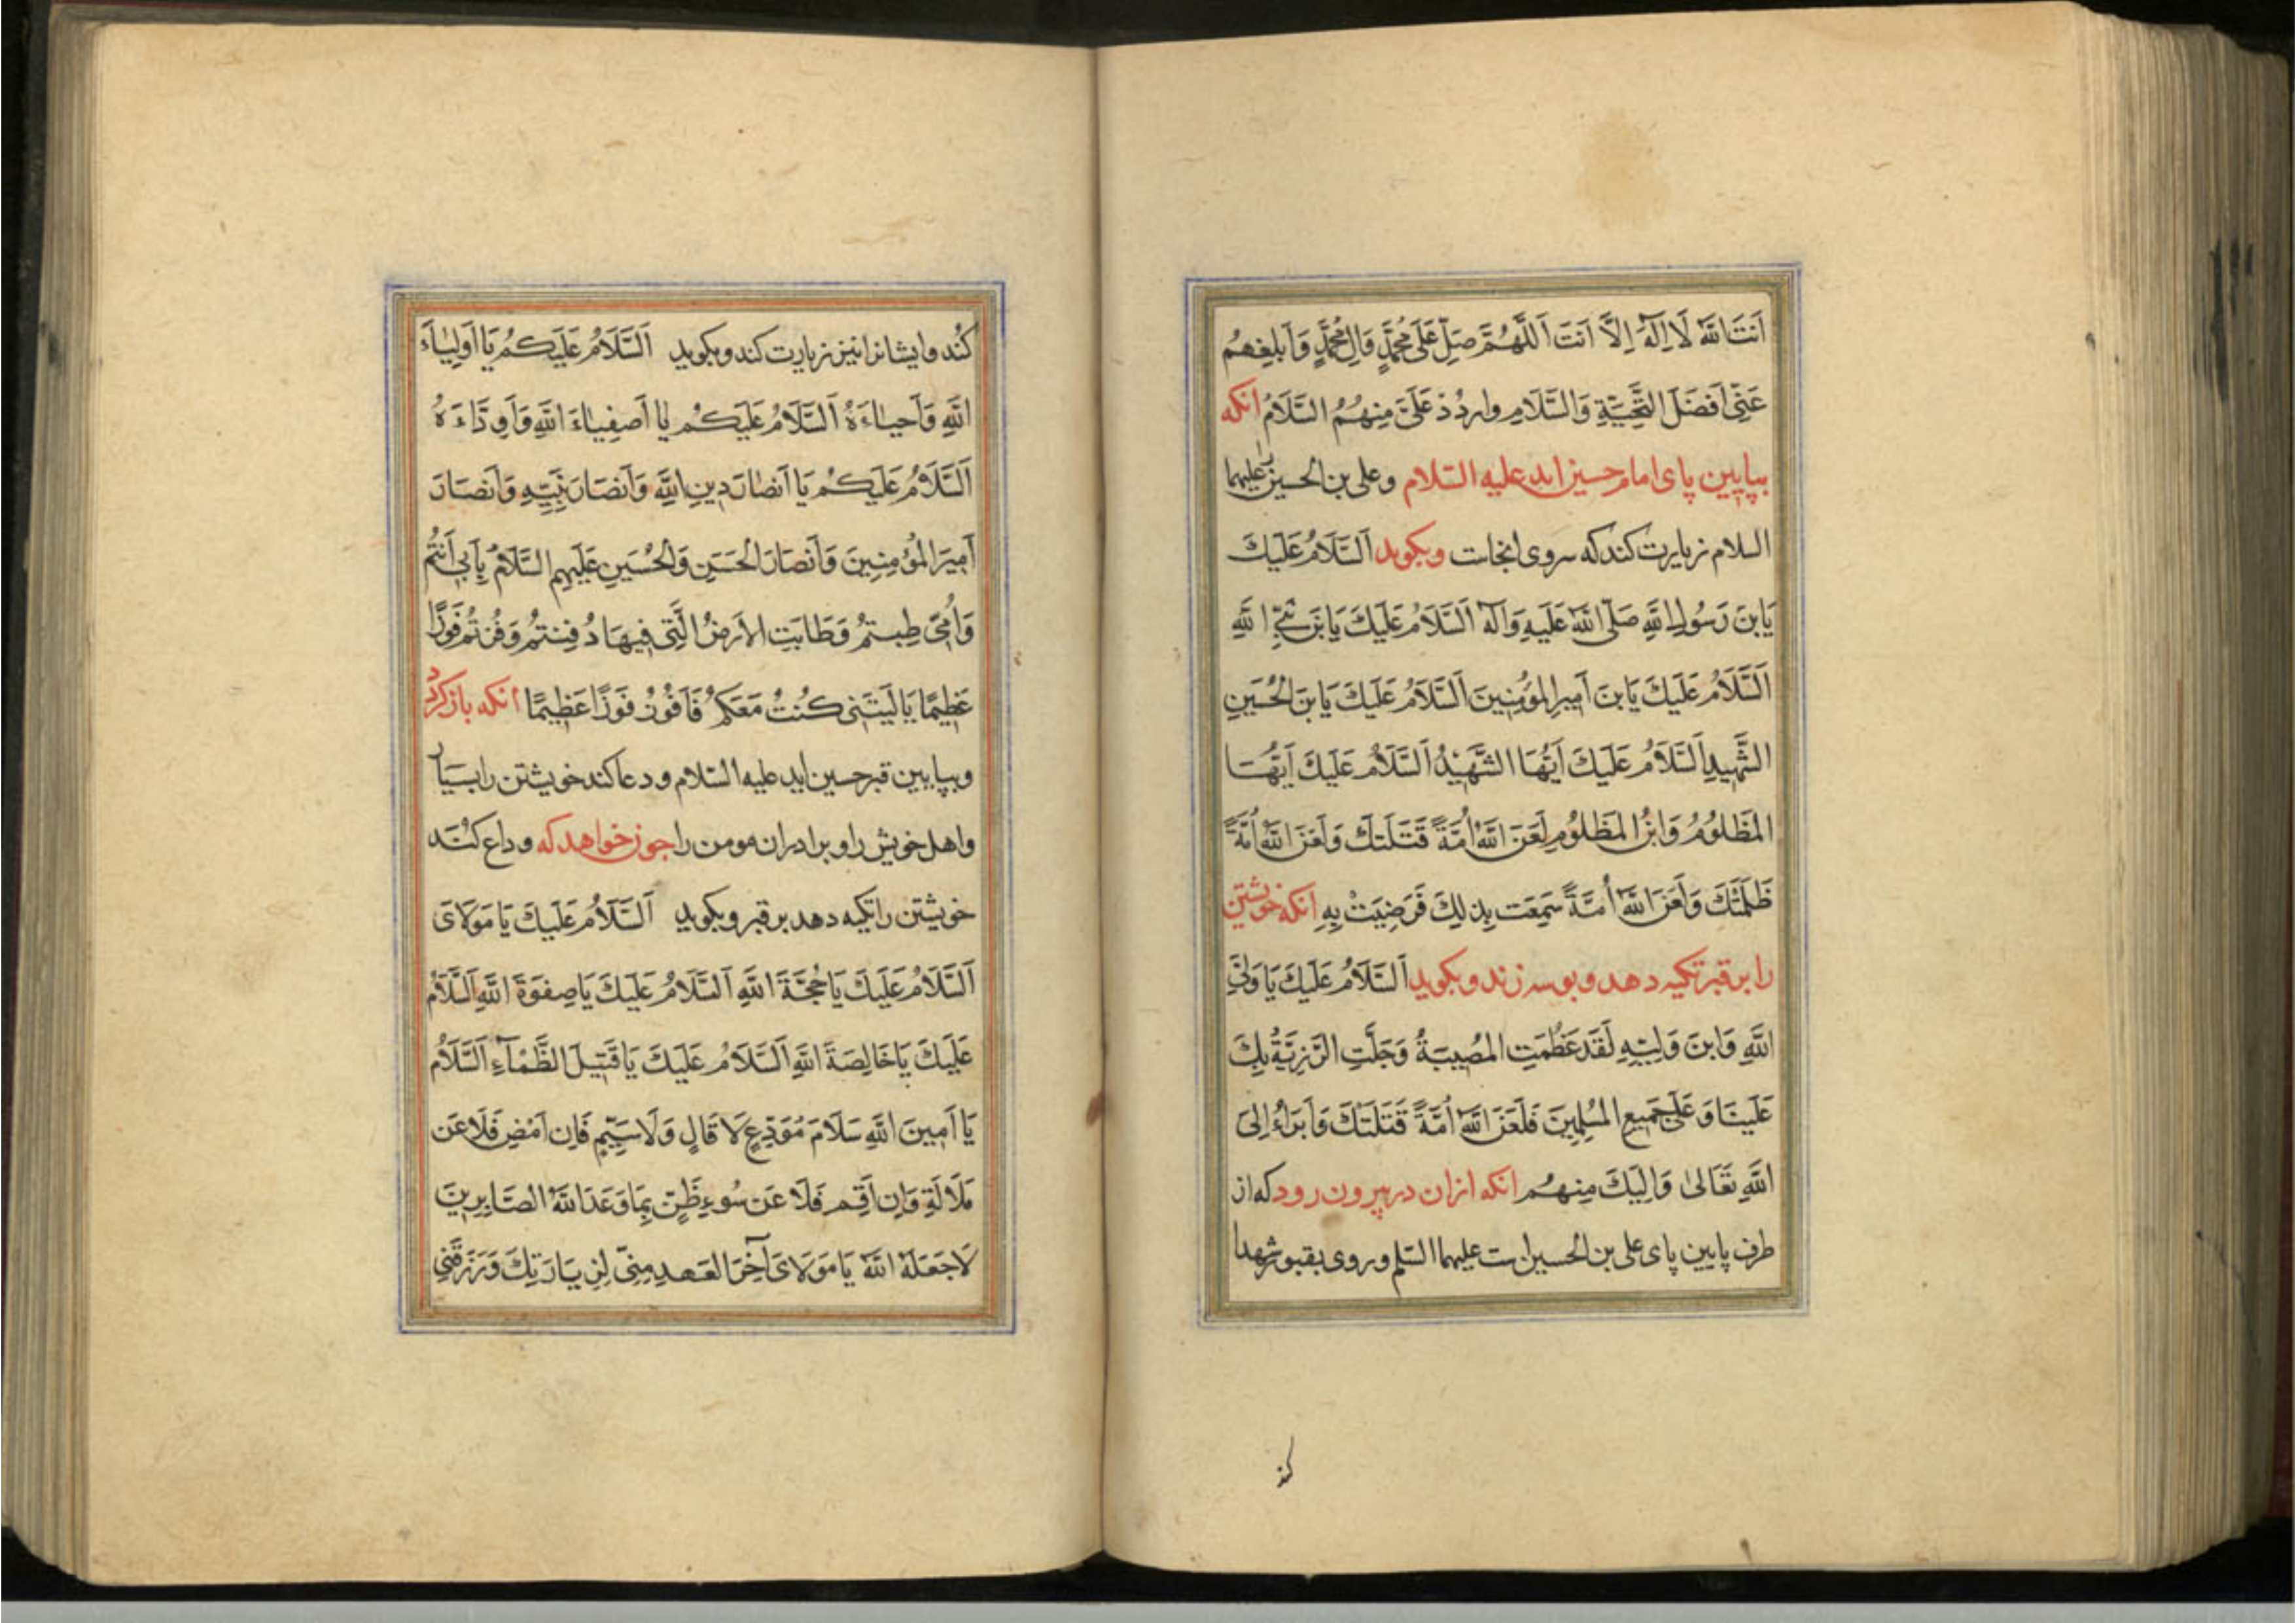 اَنتَ اللهُ لَا اِلٰهَ اِلَّا اَنتَ اَللّٰهُمَّ صَلِّ عَلٰى مُحَمَّدٍ وَآلِ مُحَمَّدٍ وَاَبلِغهُم
عَنّى اَفضَلَ التَّحِيَّةِ وَالسَّلَامِ واردُد عَلَىَّ مِنهُمُ السَّلَامُ انكه
بپايين پاى امام حسين ايد عليه السّلام و على بن الحسين را عليهما
السلام زيارت كند كه سروى انجاست و بكويد اَلسَّلَامُ عَلَيكَ
يَابنَ رَسُولِ اللهِ صَلَّى اللهُ عَلَيهِ وَآله اَلسَّلَامُ عَلَيكَ يَابنَ نَبِىِّ اللهِ
اَلسَّلَامُ عَلَيكَ يَابنَ اَميرِ المُؤمِنِينَ اَلسَّلَامُ عَلَيكَ يَابنَ الحُسَينِ
الشَّهِيدِ اَلسَّلَامُ عَلَيكَ اَيُّهَا الشَّهِيدُ اَلسَّلَامُ عَلَيكَ اَيُّهَا
المَظلُومُ وَابنُ المَظلُومِ لَعَنَ اللهُ اُمَّةً قَتَلَتكَ وَلَعَنَ اللهُ اُمَّةً
ظَلَمَتكَ وَلَعَنَ اللهُ اُمَّةً سَمِعَت بِذلِكَ فَرَضِيَتْ بِهِ انكه خويشتن
را بر قبر تكيه دهد و بوسه زند و بكويد اَلسَّلَامُ عَلَيكَ يَا وَلِىَّ
اللهِ وَابنَ وَلِيِّهِ لَقَد عَظُمَتِ المُصِيبَةُ وَجَلَّتِ الرَّزِيَّةُ بِكَ
عَلَينَا وَ عَلٰى جَمِيعِ المُسلِمِينَ فَلَعَنَ اللهُ اُمَّةً قَتَلَتكَ وَاَبرَاُ اِلَى
اللهِ تَعَالٰى وَاِلَيكَ مِنهُم انكه ازان در بيرون رود كه از
طرف پايين پاى على بن الحسين است عليهما السّلم و روى بقبور شهدا
كند
كُند و ايشانرا نيز زيارت كند و بكويد اَلسَّلَامُ عَلَيكُم يَا اَولِيَاءَ
اللهِ وَاَحِبَّاءَهُ اَلسَّلَامُ عَلَيكُم يَا اَصفِيَاءَ اللهِ وَاَوِدَّاءَهُ
اَلسَّلَامُ عَلَيكُم يَا اَنصَارَ دِينِ اللهِ وَاَنصَارَ نَبِيِّهِ وَاَنصَارَ
اَمِيرَ المُؤمِنِينَ وَاَنصَارَ الحَسَنِ وَالحُسَينِ عَلَيهِمِ السَّلَامُ بِاَبِى اَنتُم
وَاُمِّى طِبتُم وَطَابَتِ الاَرضُ الَّتِى فِيهَا دُفِنتُم وَفُزتُم فَوزًا
عَظِيمًا يَا لَيتَنِى كُنتُ مَعَكُم فَاَفُوزَ فَوزًا عَظِيمًا انكه باز كردد
و بپايين قبر حسين ايد عليه السّلام و دعا كند خويشتن را بسيار
و اهل خويش را و برادران مومن را چون خواهد كه و داع كند
خويشتن را تكيه دهد بر قبر و بكويد اَلسَّلَامُ عَلَيكَ يَا مَولَاىَ
اَلسَّلَامُ عَلَيكَ يَا حُجَّةَ اللهِ اَلسَّلَامُ عَلَيكَ يَا صِفوَةَ اللهِ اَلسَّلَامُ
عَلَيكَ يَا خَالِصَةَ اللهِ اَلسَّلَامُ عَلَيكَ يَا قَتِيلَ الظَّمَآءِ اَلسَّلَامُ
يَا اَمِينَ اللهِ سَلَامَ مُوَدِّعٍ لَا قَالٍ وَلَا سَئِمٍ فَاِن اَمضِ فَلَا عَن
مَلَالَةٍ وَاِن اُقِم فَلَا عَن سُوءِ ظَنٍّ بِمَا وَعَدَ اللهُ الصَّابِرِينَ
لَا جَعَلَهُ اللهُ يَا مَولَاىَ آخِرَ العَهدِ مِنّى لِزِيَارَتِكَ وَرَزَقَنِى